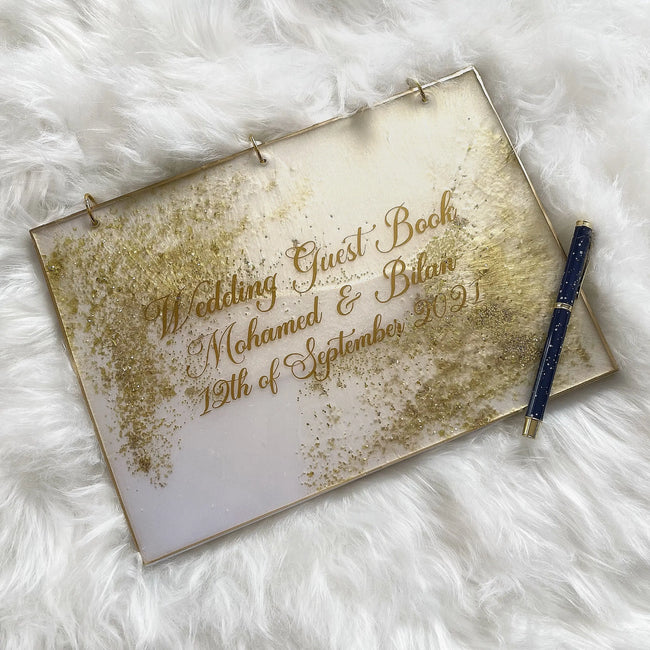 Wedding Guest Book
Mohamed & Bilan
19th of September 2021